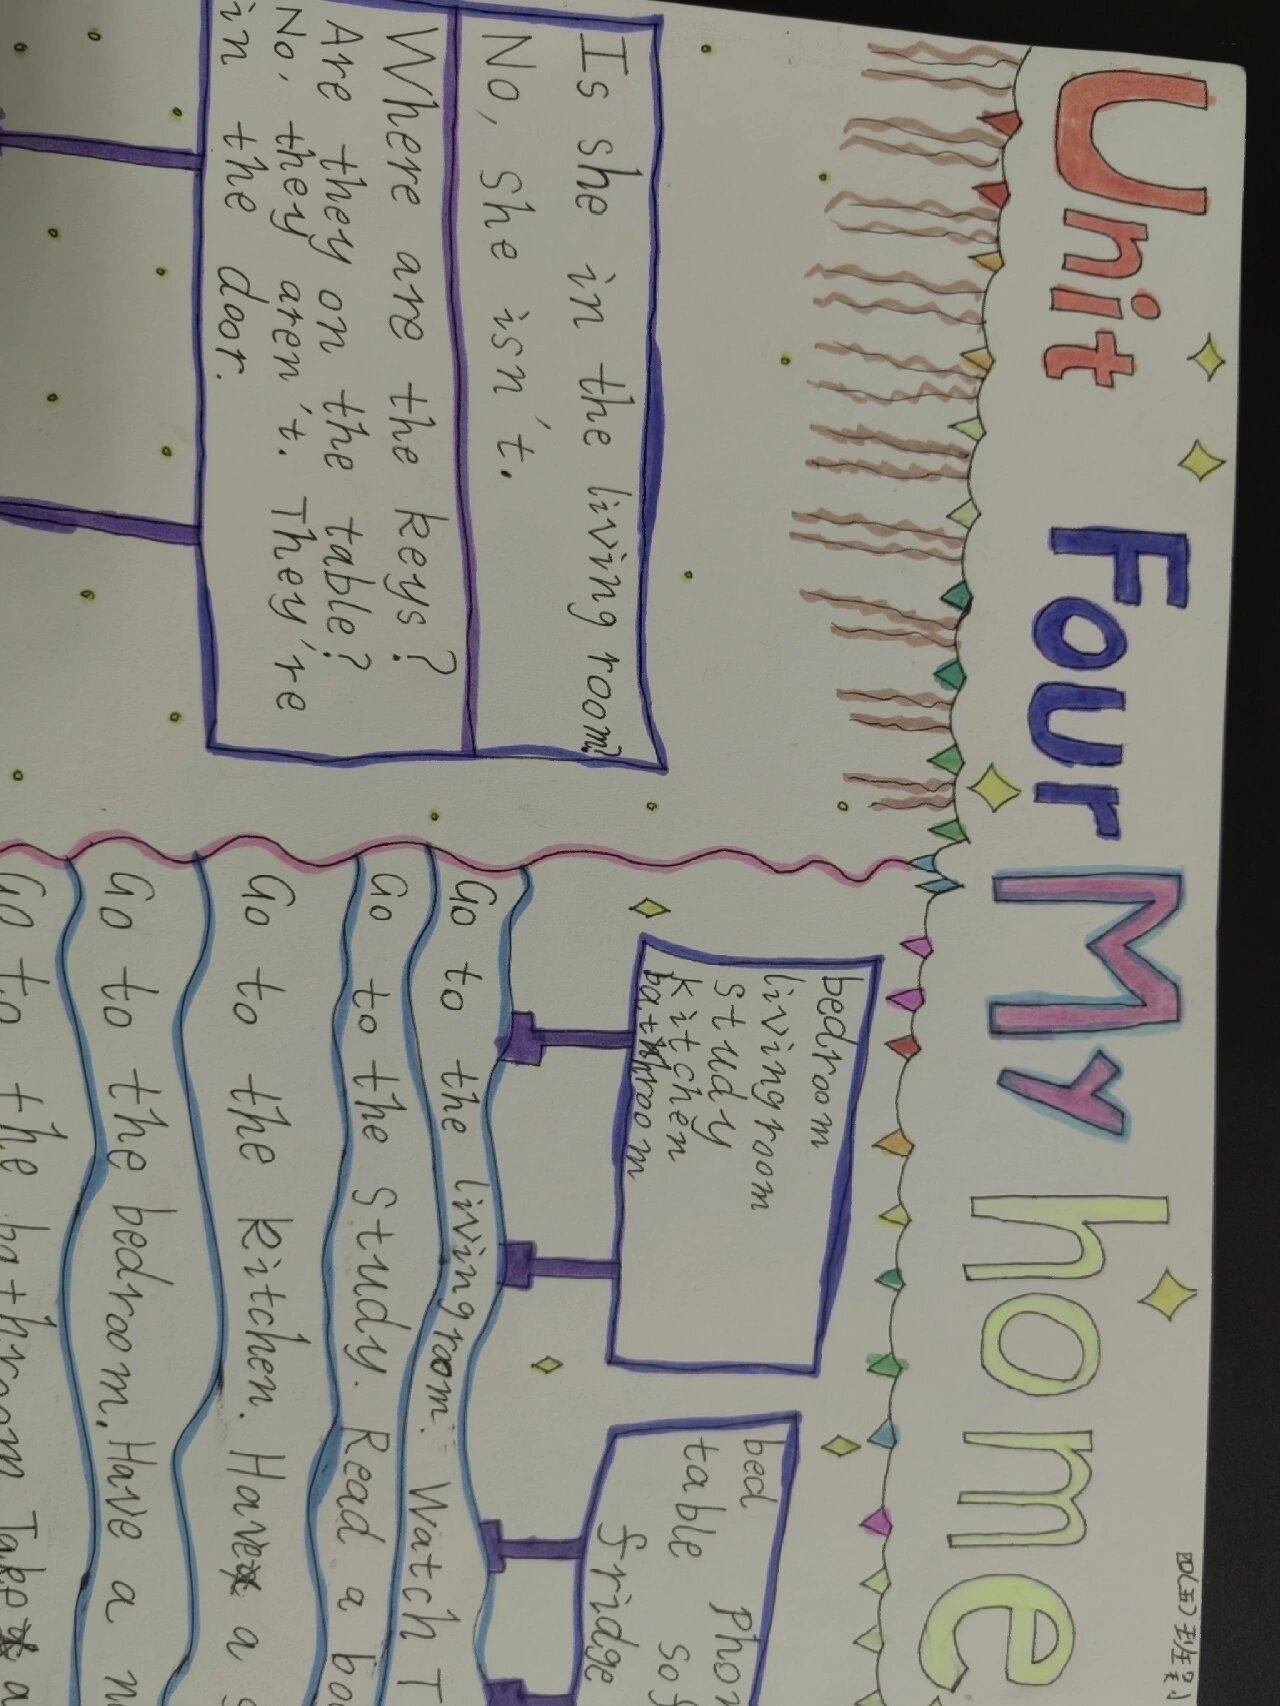 Unit Four My home
Is she in the living room?
No, she isn't.
Where are the keys?
Are they on the table?
No, they aren't. They're
in the door.
bedroom
livingroom
study
kitchen
bathroom
bed
table
fridge
Go to the livingroom. Watch T
Go to the study. Read a
Go to the kitchen. Have a
Go to the bedroom. Have a
Go to the bathroom Take a